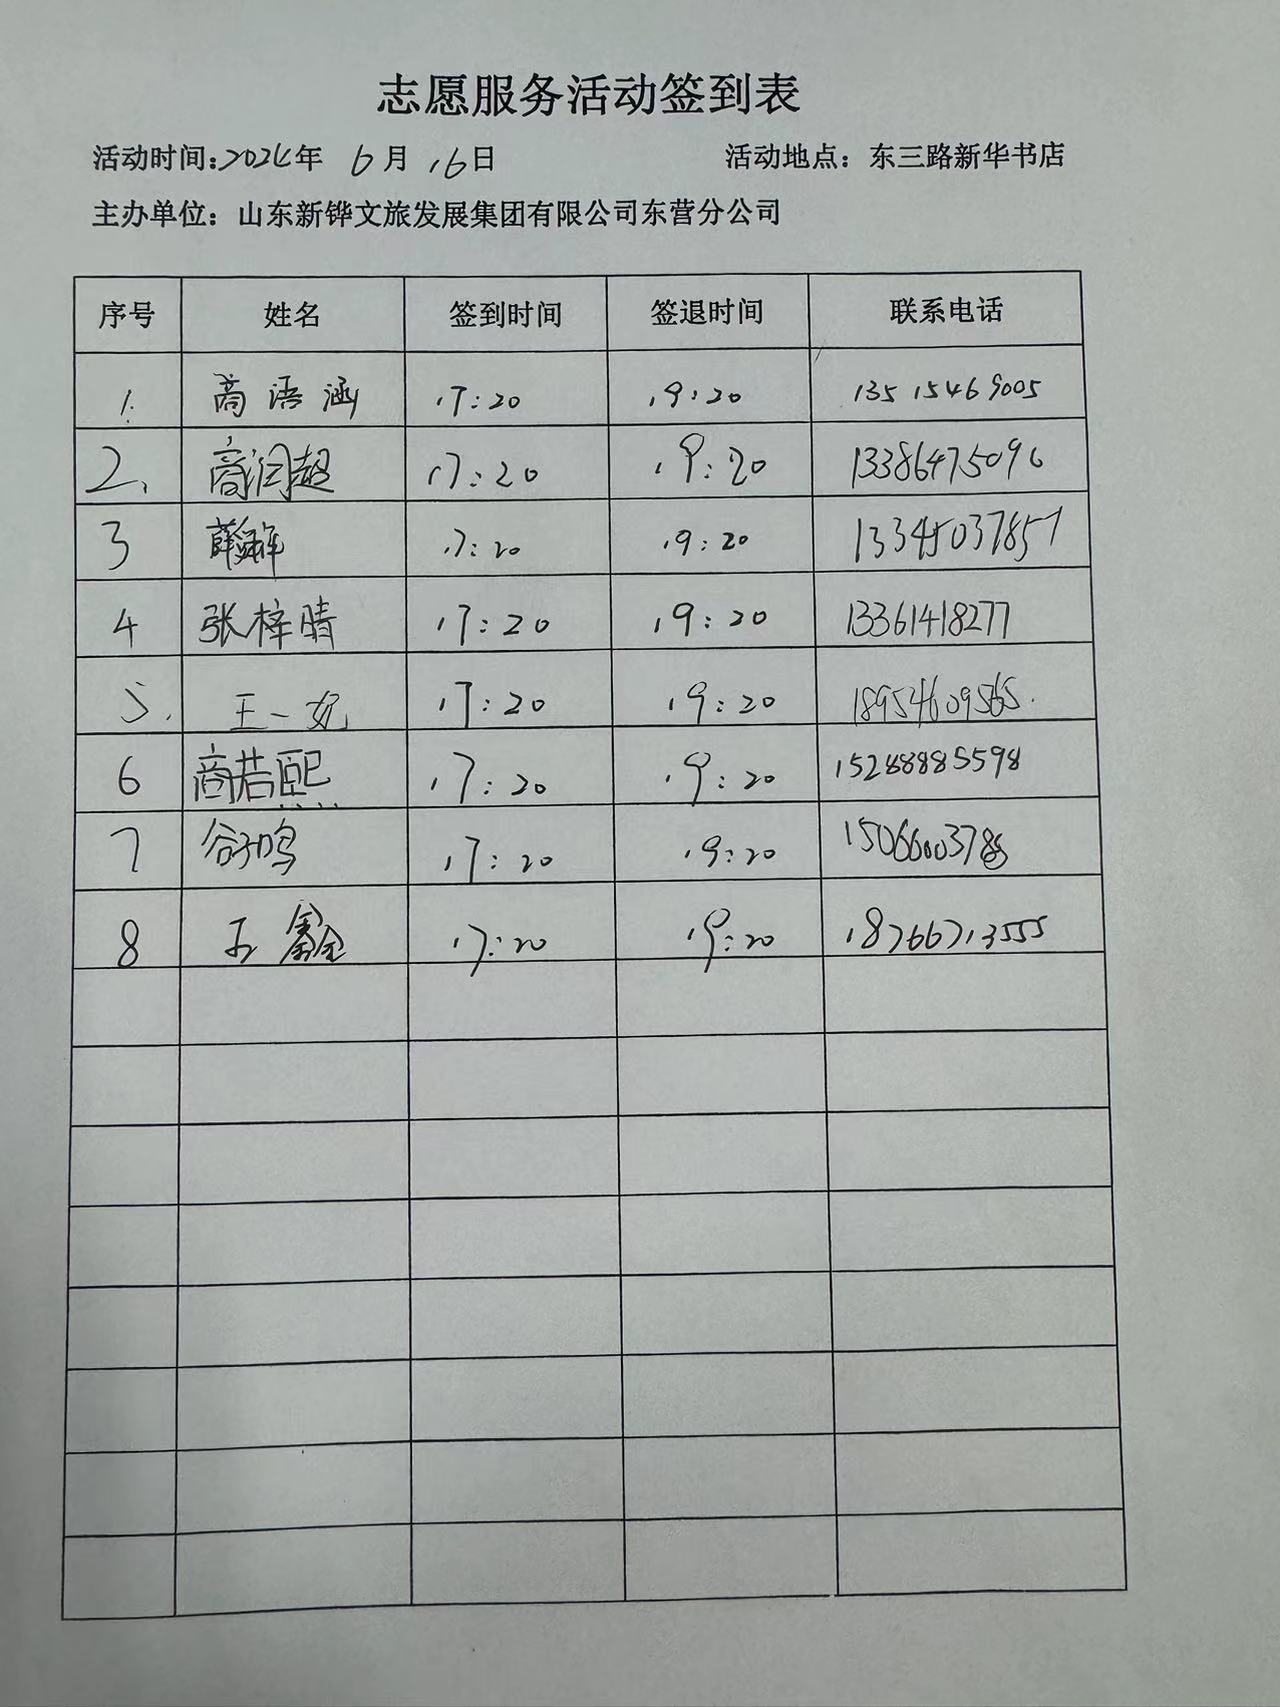 志愿服务活动签到表
活动时间:2024年 6月 16日 活动地点：东三路新华书店
主办单位：山东新铧文旅发展集团有限公司东营分公司
序号 姓名 签到时间 签退时间 联系电话
1. 商语涵 17:20 19:20 13515469005
2、 商润超 17:20 19:20 13386475096
3 薛 17:20 19:20 13345037857
4 张梓晴 17:20 19:20 13361418277
5. 王一妃 17:20 19:20 18954609565.
6 商若熙 17:20 19:20 15288885598
7 谷子鸣 17:20 19:20
8 王鑫 17:20 19:20 18766713555